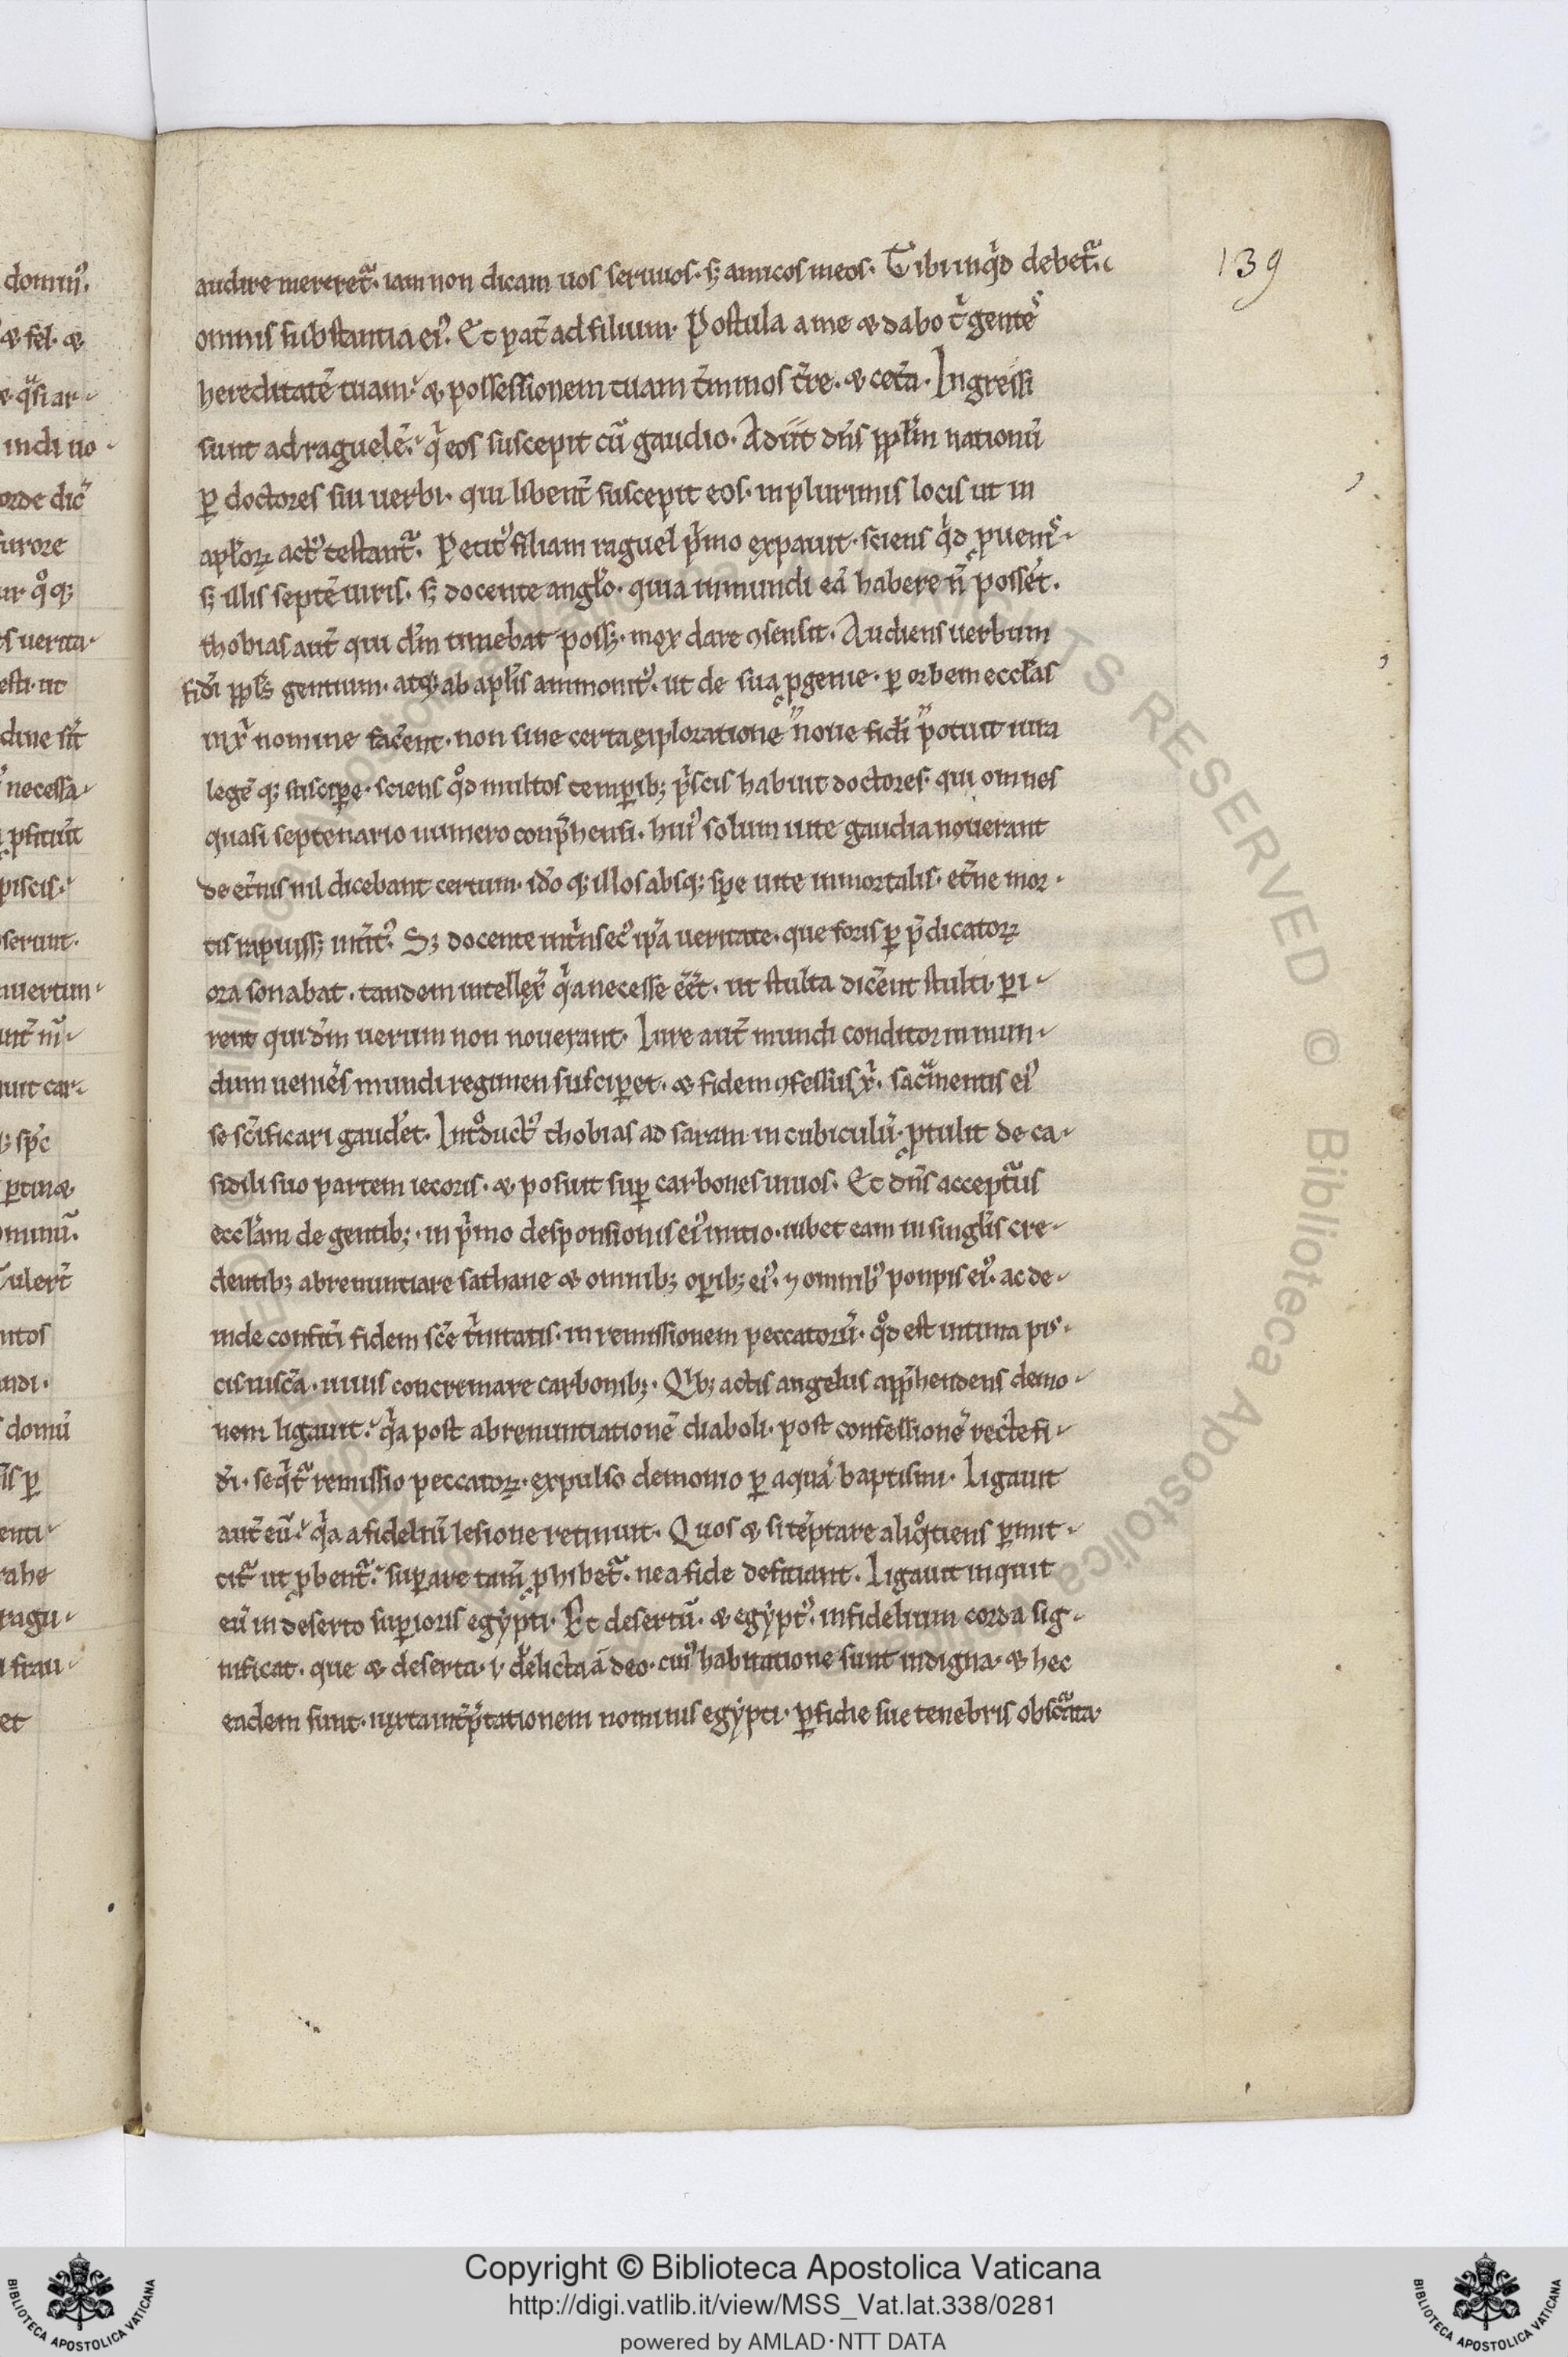 139
audire mereret᷑. iam non dicam uos seruuos. sꝫ amicos meos. Tibi inqͥd debet᷑.
omnis substantia eiꝰ. Et pat̄ ad filium. Postula a me ⁊ dabo tͥ gentes
hereditatē tuam. ⁊ possessionem tuam t̄minos t̄re. ⁊ cet̄a. Ingressi
sunt ad raguelē. qͥ eos suscepit cū gaudio. Adiit dn̄s ppl̄m nationū
ꝑ doctores sui uerbi. qui libent̄ suscepit eos. in plurimis locis ut in
apl̄oꝝ actꝰ testant᷑. Petitꝰ filiam raguel pͥmo expauit. sciens qͥd ꝓuenͥ
sꝫ illis septē uiris. sꝫ docente angl̄o. quia inmundi eā habere n̄ possēt.
thobias aut̄ qui dm̄ timebat possꝫ. mox dare ꝯsensit. Audiens uerbum
fidi ppl̄s gentium. atqꝫ ab apl̄is ammonitꝰ. ut de sua ꝓgenie. ꝑ orbem eccl̄as
in xͥ nomine facēent. non sine certa exploratione noue fidi potuit iura
legē qꝫ suscipe. sciens qͦd multos temꝑibꝫ pͥscis habuit doctores. qui omnes
quasi septenario numero conp̄hensi. huiꝰ solum uite gaudia nouerant
de et̄nis nil dicebant certum. idō qꝫ illos absqꝫ spe uite inmortalis. et̄ne mor
tis rapuissꝫ int̄itꝰ. Sꝫ docente intͥnsecꝰ ip̄a ueritate. que foris ꝑ p̄dicatoꝝ
ora sonabat. tandem intellex̄ qͥa necesse eēt. ut stulta dicēnt stulti ꝑi
rent qui dm̄ uerum non nouerant. Iure aut̄ mundi conditor in mun
dum ueniēs mundi regimen susciꝑet. ⁊ fidem ꝯfessus xͥ. sacͣmentis eiꝰ
se sc̄ificari gaudēt. Intͦductꝰ thobias ad saram in cubiculū. ꝓtulit de ca
sidili suo partem iecoris. ⁊ posuit suꝑ carbones uiuos. Et dn̄s acceptͣus
eccl̄am de gentibꝫ. in pͥmo desponsionis eiꝰ initio. iubet eam in singl̄is cre
dentibꝫ abrenuntiare sathane ⁊ omnibꝫ oꝑibꝫ eiꝰ. ⁊ omnibꝰ ponpis eiꝰ. ac de
inde confit̄i fidem sc̄e tͥnitatis. in remissionem peccatorū. qͦd est intima pis
cis uisc̄a. uiuis concremare carbonibꝫ. Qͥbꝫ actis angelus app̄hendens demo
nem ligauit. qͥa post abrenuntiationē diaboli. post confessionē recte fi
di. seqͥt᷑ remissio peccatoꝝ. expulso demonio ꝑ aquā baptismi. Ligauit
aut̄ eū. qͥa a fideliū lesione retinuit. Quos ⁊ si tēptare aliqͦtiens ꝑmit
tit᷑ ut ꝓbent᷑. suꝑare tam̄ ꝓhibet᷑. ne a fide deficiant. Ligauit inquit
eū in deserto suꝑioris egypti. Et desertū. ⁊ egyptꝰ. infidelium corda sig
nificat. que ⁊ deserta. i. delicta a deo. cuiꝰ habitatione sunt indigna. ⁊ hec
eadem sunt. iuxta int̄p̄tationem nominis egypti. ꝑfidie sue tenebris obscͣata.
Copyright © Biblioteca Apostolica Vaticana
http://digi.vatlib.it/view/MSS_Vat.lat.338/0281
powered by AMLAD·NTT DATA